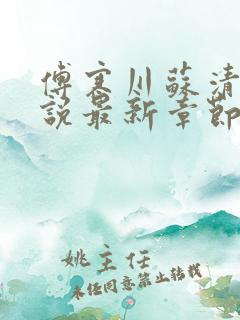 傅寒川蘇清
說最新章節
姚主任
未经同意禁止转载